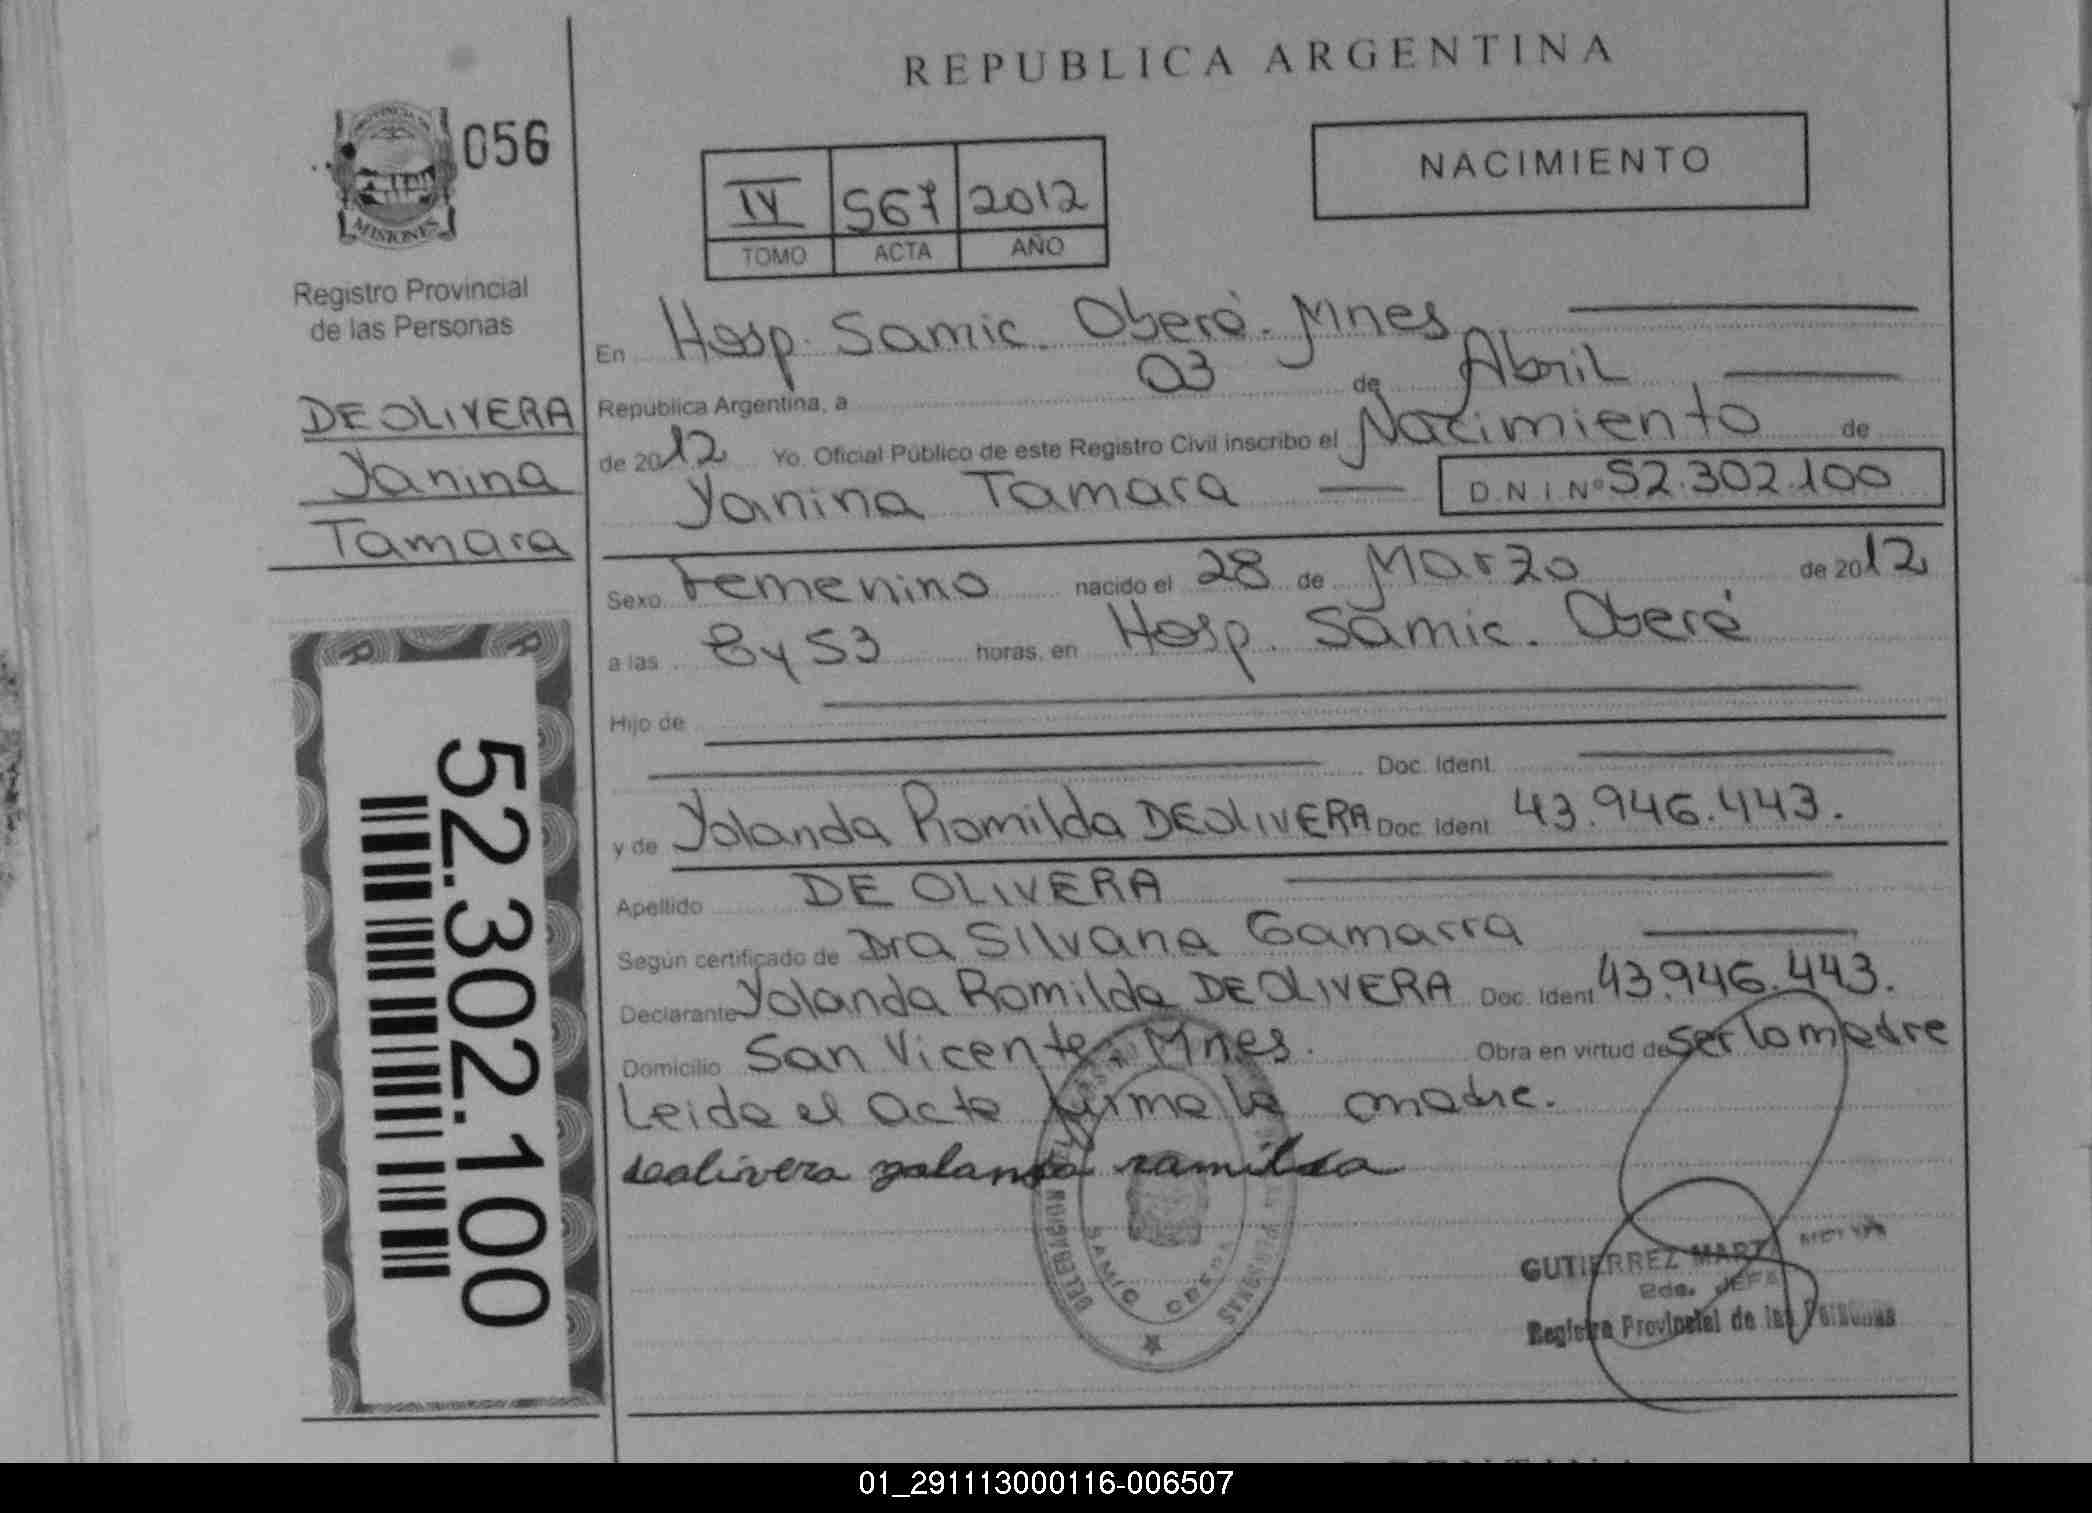 REPUBLICA ARGENTINA
056
MISIONES
Registro Provincial
de las Personas
DEOLIVERA
Yanina
Tamara
52.302.100
NACIMIENTO
IV 567 2012
TOMO ACTA AÑO
En Hosp. Samic. Oberá. Mnes
República Argentina, a 03 de Abril
de 2012 Yo, Oficial Público de este Registro Civil inscribo el Nacimiento de
Yanina Tamara D.N.I Nº 52.302.100
Sexo Femenino nacido el 28 de Marzo de 2012
a las 8 y 53 horas, en Hosp. Samic. Oberá
Hijo de
Doc. Ident.
y de Yolanda Romilda DEOLIVERA Doc. Ident 43.946.443.
Apellido DE OLIVERA
Según certificado de Dra Silvana Gamarra
Declarante Yolanda Romilda DEOLIVERA Doc. Ident 43.946.443.
Domicilio San Vicente, Mnes. Obra en virtud de ser la madre
Leida el acta firma la madre.
deolivera yolanda ramilda
SAMIC OBERA
GUTIERREZ
JEFA
Registro Provincial de las Personas
01_291113000116-006507